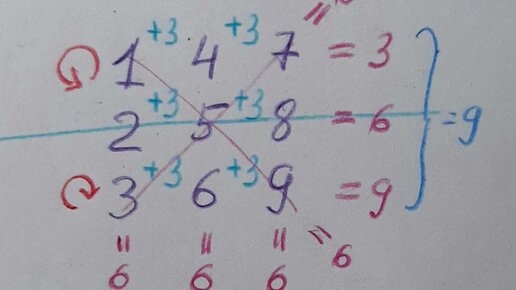 1 +3 4 +3 7 = 3
2 +3 5 +3 8 = 6 = 9
3 +3 6 +3 9 = 9
= = = = 6
6 6 6